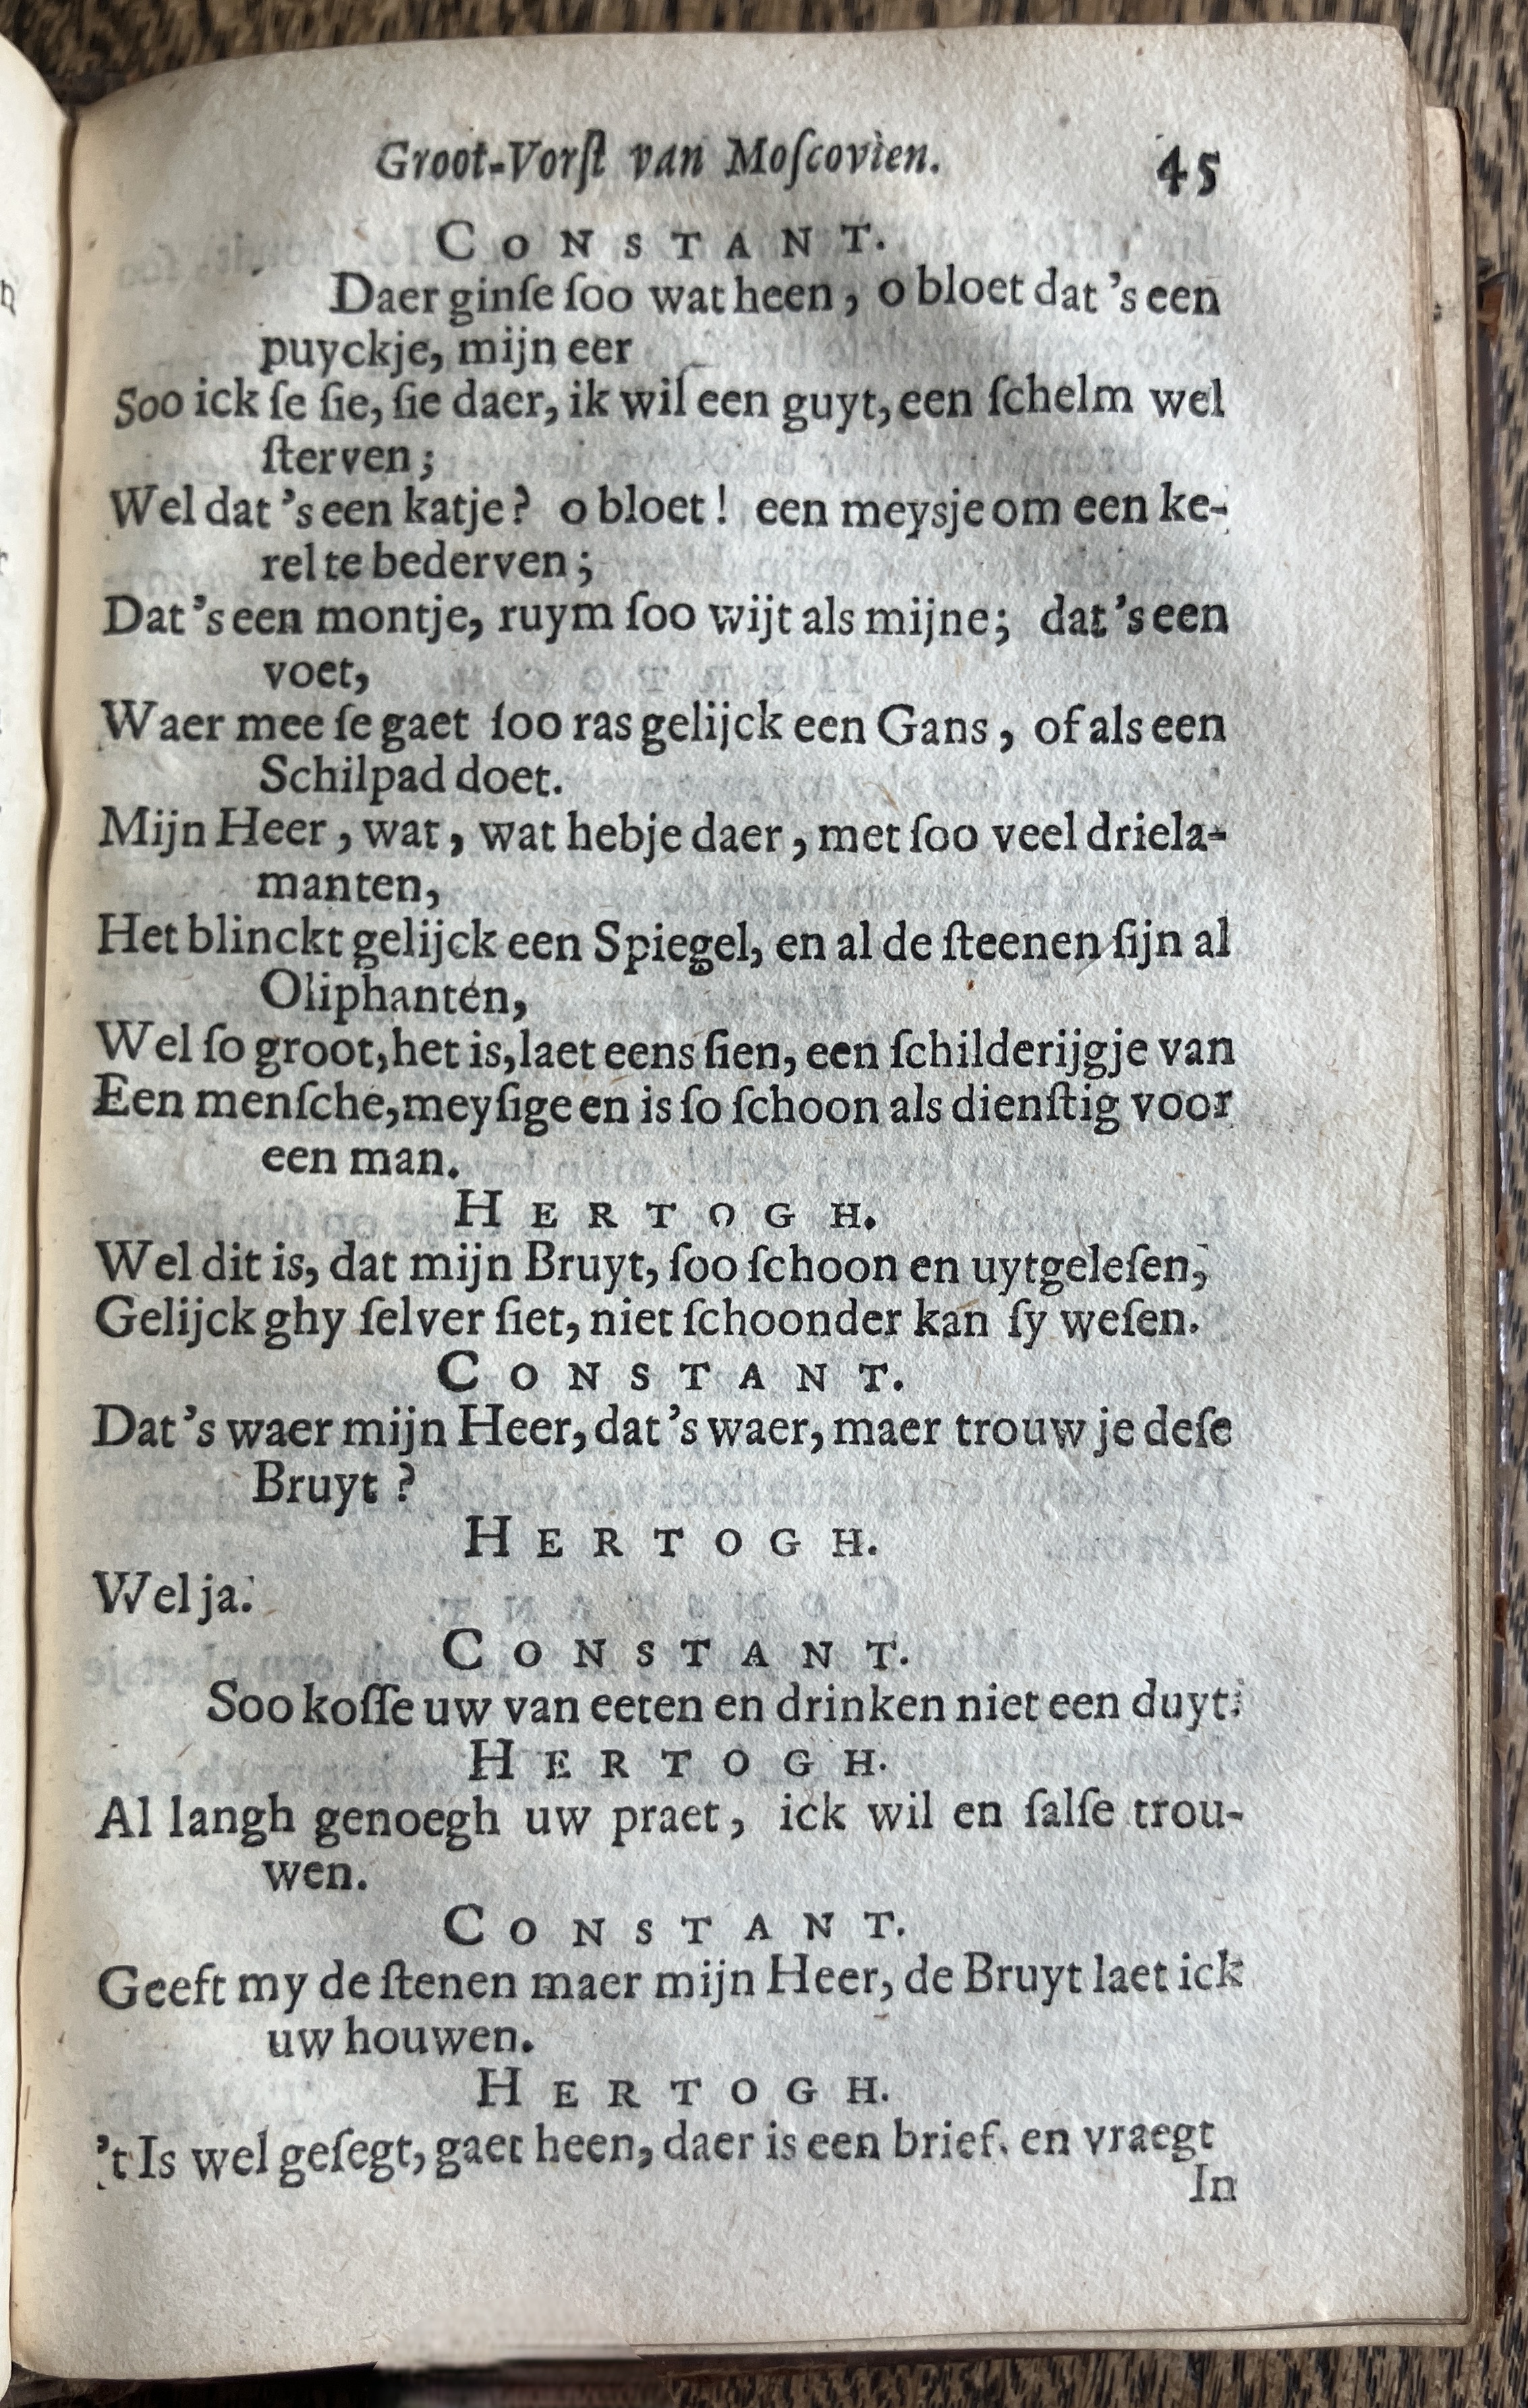 Groot-Vorſt van Moſcovien. 45
CONSTANT.
Daer ginſe ſoo wat heen, o bloet dat 's een
puyckje, mijn eer
Soo ick ſe ſie, ſie daer, ik wil een guyt, een ſchelm wel
ſterven;
Wel dat 's een katje? o bloet! een meysje om een ke-
rel te bederven;
Dat 's een montje, ruym ſoo wijt als mijne; dat 's een
voet,
Waer mee ſe gaet ſoo ras gelijck een Gans, of als een
Schilpad doet.
Mijn Heer, wat, wat hebje daer, met ſoo veel driela-
manten,
Het blinckt gelijck een Spiegel, en al de ſteenen ſijn al
Oliphanten,
Wel ſo groot, het is, laet eens ſien, een ſchilderijgje van
Een menſche, meyſige en is ſo ſchoon als dienſtig voor
een man.
HERTOGH.
Wel dit is, dat mijn Bruyt, ſoo ſchoon en uytgeleſen,
Gelijck ghy ſelver ſiet, niet ſchoonder kan ſy weſen.
CONSTANT.
Dat 's waer mijn Heer, dat 's waer, maer trouw je deſe
Bruyt?
HERTOGH.
Wel ja.
CONSTANT.
Soo koſſe uw van eeten en drinken niet een duyt.
HERTOGH.
Al langh genoegh uw praet, ick wil en ſalſe trou-
wen.
CONSTANT.
Geeft my de ſtenen maer mijn Heer, de Bruyt laet ick
uw houwen.
HERTOGH.
't Is wel geſegt, gaet heen, daer is een brief. en vraegt
In